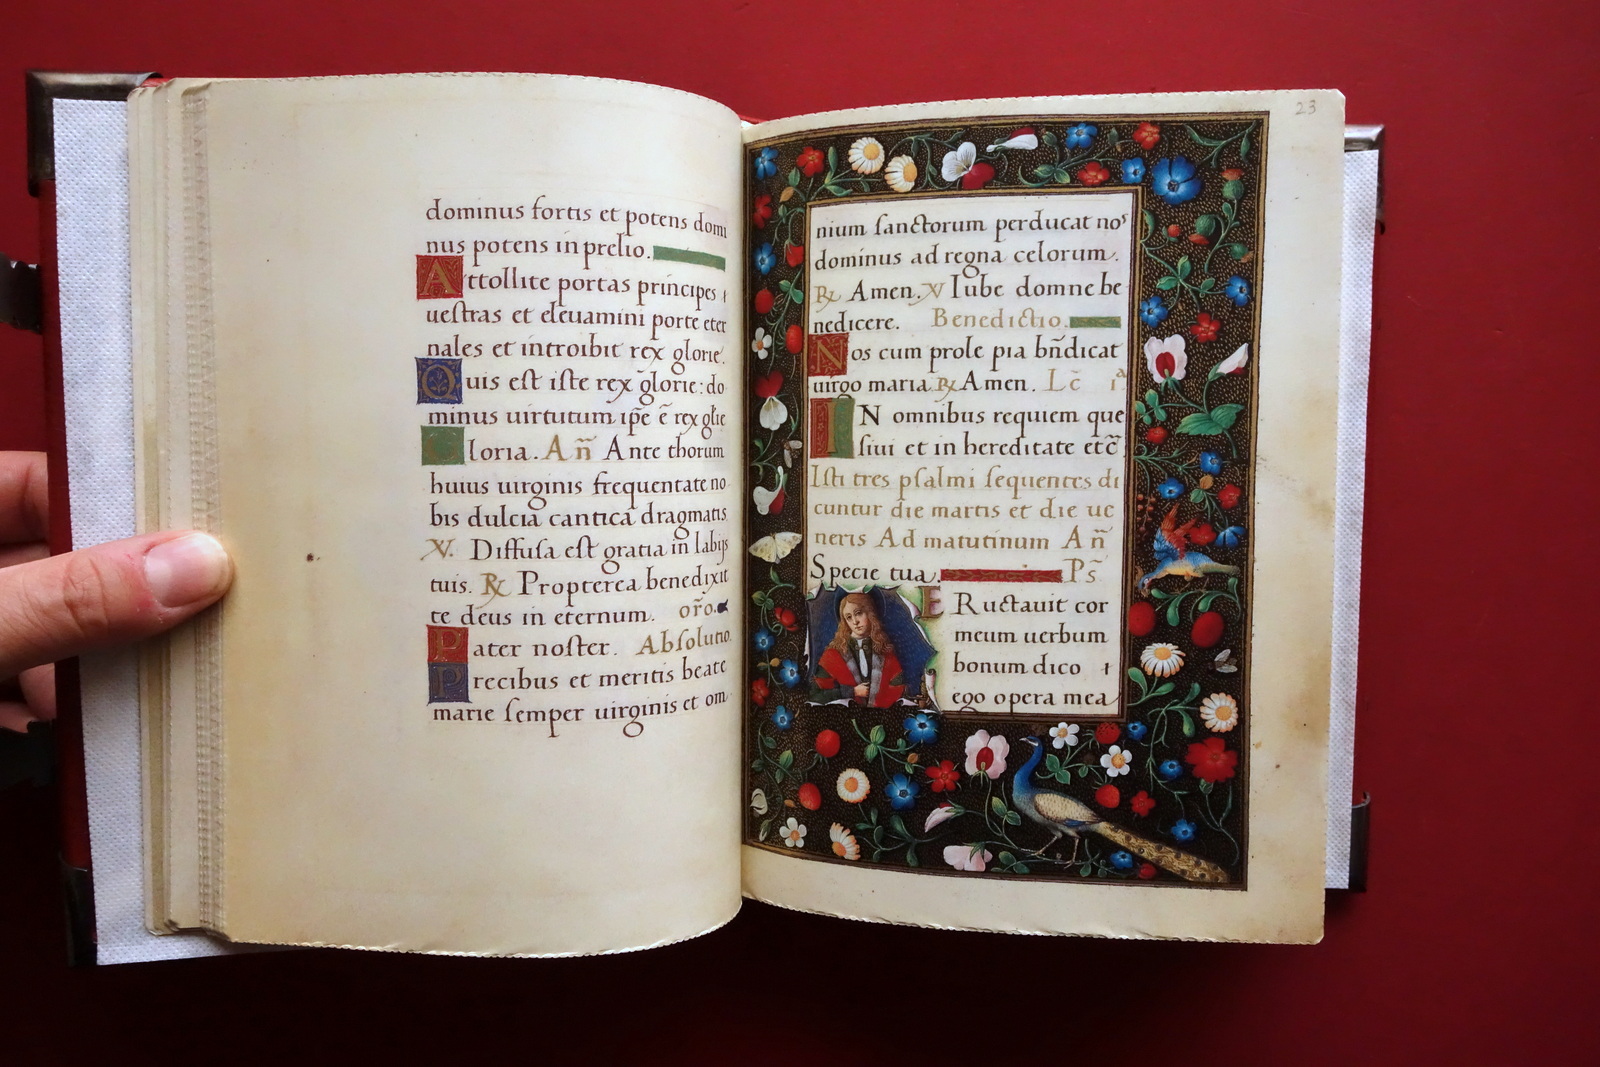 dominus fortis et potens domi
nus potens in prelio.
Attollite portas principes
uestras et eleuamini porte eter
nales et introibit rex glorie.
Quis est iste rex glorie: do
minus uirtutum ip̄e ē rex glie
Gloria. An̄ Ante thorum
huius uirginis frequentate no
bis dulcia cantica dragmatis
℣. Diffusa est gratia in labijs
tuis. ℟ Propterea benedixit
te deus in eternum. or̄o.
Pater noster. Absolutio.
Precibus et meritis beate
marie semper uirginis et om
23
nium sanctorum perducat nos
dominus ad regna celorum.
℟ Amen. ℣ Iube domne be
nedicere. Benedictio.
Nos cum prole pia bn̄dicat
uirgo maria ℟ Amen. Lc̄ iᵃ
IN omnibus requiem que
siui et in hereditate etc̄
Isti tres psalmi sequentes di
cuntur die martis et die ue
neris Ad matutinum An̄
Specie tua. Ps̄
ERuctauit cor
meum uerbum
bonum dico
ego opera mea